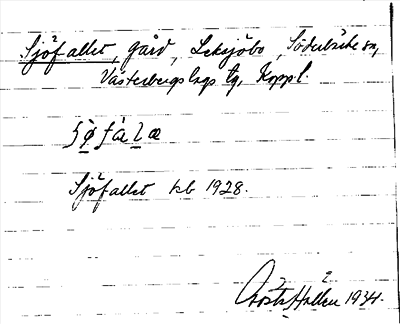 Sjöfallet, gård, Leksjöbo, Söderbärke sn,
Västerbergslags tg, Koppl.
Sjöfallet kb 1928.
Gösta Hallén 1934.